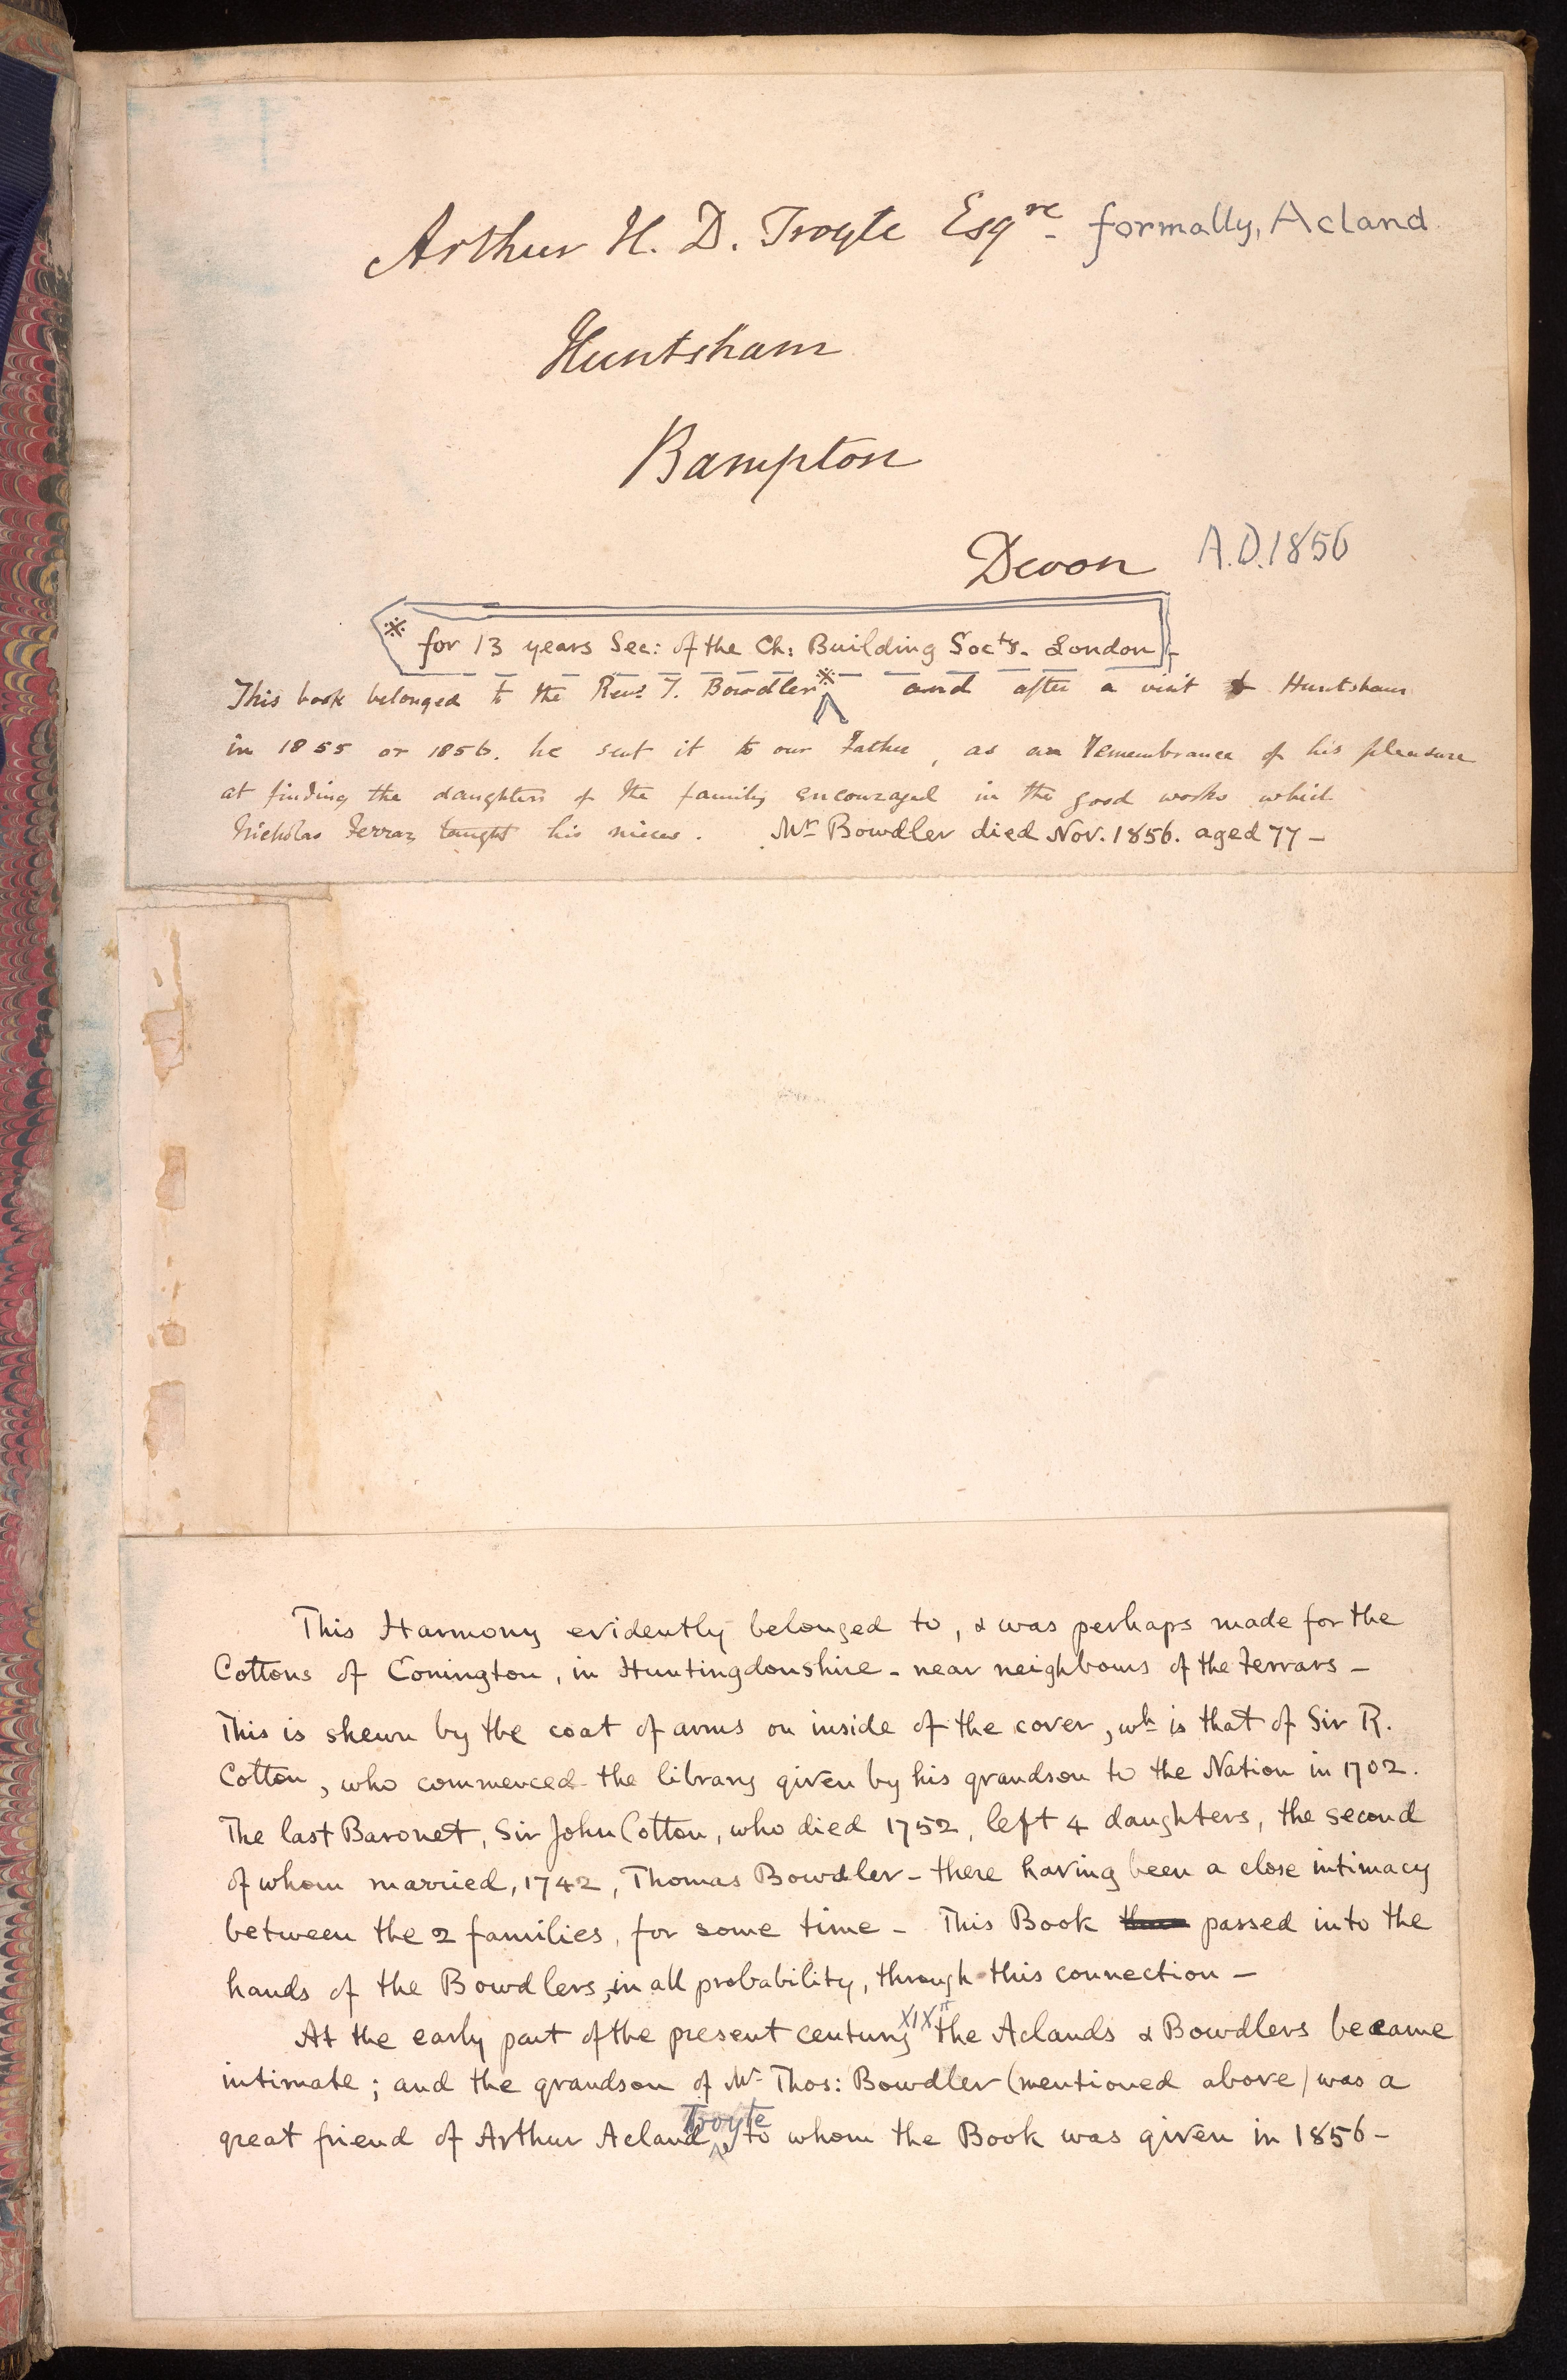 Arthur H. D. Troyte Esqre. formally, Acland
Huntsham
Bampton
Devon A.D. 1856
※ for 13 years Sec: of the Ch: Building Socty. London
This book belonged to the Revd T. Bowdler※ and after a visit to Huntsham
in 1855 or 1856. he sent it to our Father, as an remembrance of his pleasure
at finding the daughters of the family encouraged in the good works which
Nicholas Ferrar taught his nieces. Mr Bowdler died Nov. 1856. aged 77 –
This Harmony evidently belonged to, & was perhaps made for the
Cottons of Conington, in Huntingdonshire - near neighbours of the Ferrars –
This is shewn by the coat of arms on inside of the cover, wh is that of Sir R.
Cotton, who commenced the library given by his grandson to the Nation in 1702.
The last Baronet, Sir John Cotton, who died 1752, left 4 daughters, the second
of whom married, 1742, Thomas Bowdler – there having been a close intimacy
between the 2 families, for some time – This Book passed into the
hands of the Bowdlers, in all probability, through this connection –
At the early part of the present century XIXth the Aclands & Bowdlers became
intimate; and the grandson of Mr Thos: Bowdler (mentioned above) was a
great friend of Arthur Acland Troyte, to whom the Book was given in 1856 –